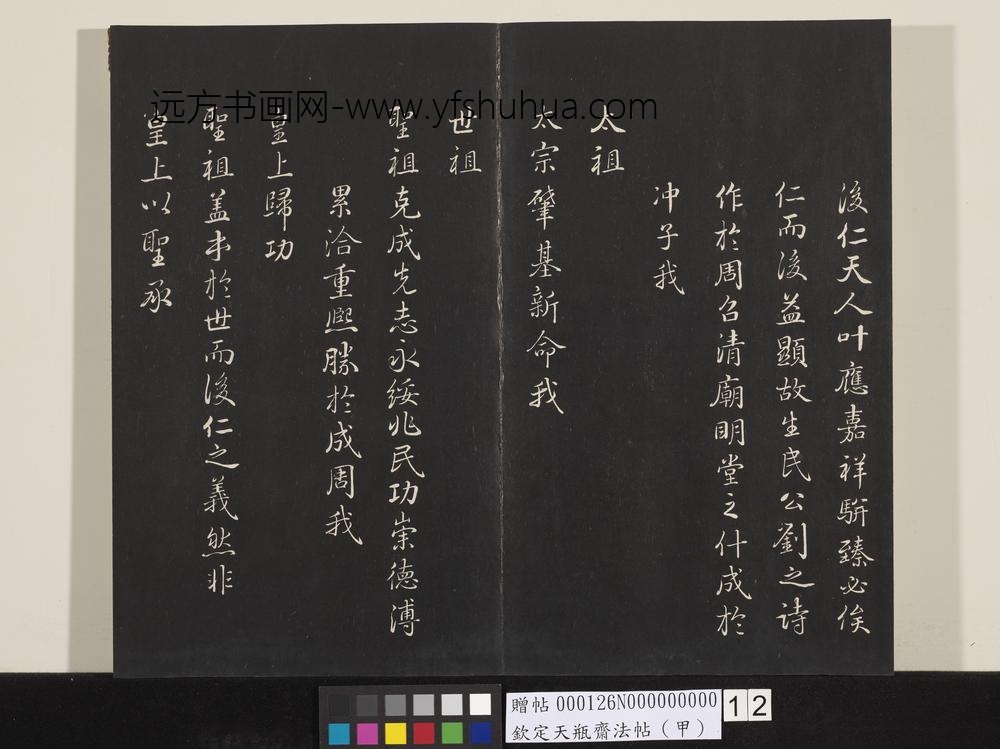 後仁天人叶應嘉祥駢臻必俟
仁而後益顯故生民公劉之詩
作於周召清廟明堂之什成於
冲子我
太祖
太宗肇基新命我
世祖
聖祖克成先志永綏兆民功崇德溥
累洽重熙勝於成周我
皇上歸功
聖祖盖本於世而後仁之義然非
皇上以聖承
远方书画网-www.yfshuhua.com
贈帖 000126N000000000
欽定天瓶齋法帖（甲）
12